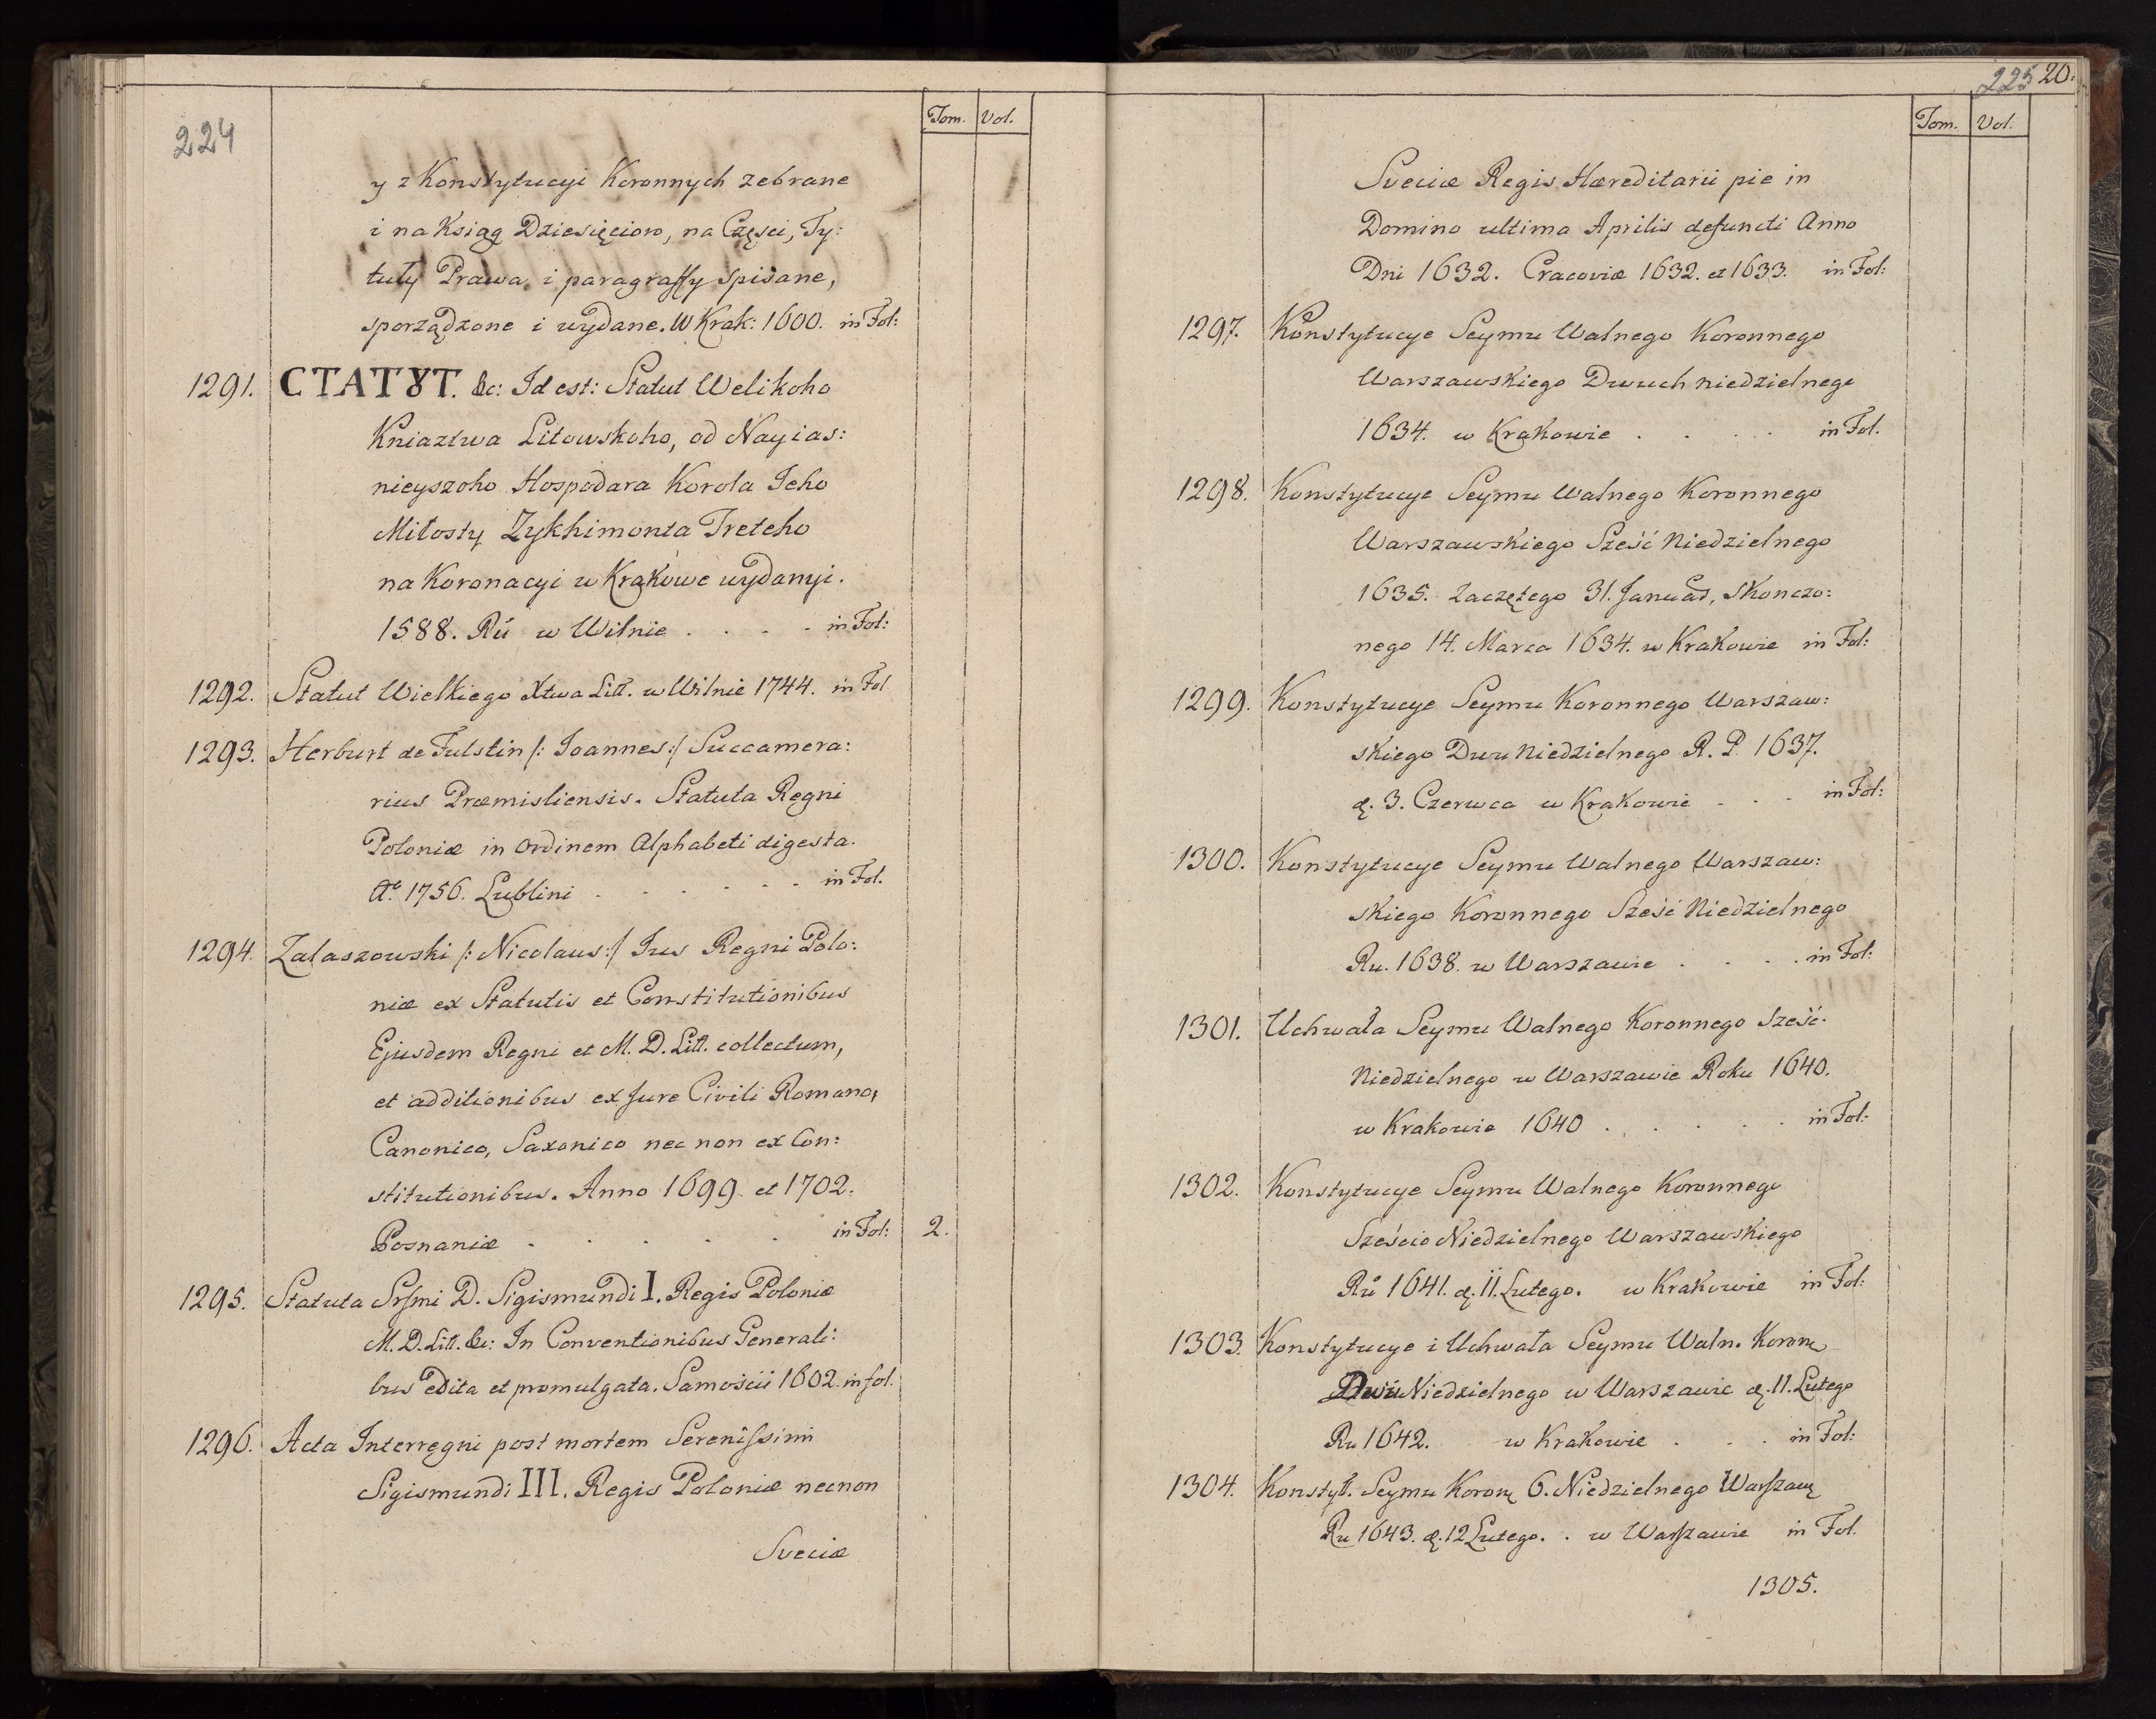 224
Tom. Vol.
y z Konstytucyi Koronnych zebrane
i na Ksiąg Dziesięcioro, na Częsci, Ty:
tuły Prawa, i paragraffy spisane,
sporządzone i wydane. W Krak: 1600. in Fol:
1291. СТАТꙋТ. &c: Id est: Statut Welikoho
Kniaztwa Litowskoho, od Nayias:
nieyszoho Hospodara Korola Jeho
Miłosty Zykhimonta Treteho
na Koronacyi w Krakowe wydanyi.
1588. Rú w Wilnie . . . . in Fol:
1292. Statut Wielkiego Xtwa Litt. w Wilnie 1744. in Fol
1293. Herburt de Fulstin /: Joannes :/ Succamera:
rius Præmisliensis. Statuta Regni
Poloniæ in Ordinem Alphabeti digesta.
Aº. 1756. Lublini . . . . . . in Fol.
1294. Zalaszowski /: Nicolaus :/ Jus Regni Polo:
niæ ex Statutis et Constitutionibus
Ejusdem Regni et M. D. Litt. collectum,
et additionibus ex Jure Civili Romano,
Canonico, Saxonico nec non ex Con:
stitutionibus. Anno 1699. et 1702.
Posnaniæ . . . . . in Fol: 2.
1295. Statuta Srſmi D. Sigismundi I. Regis Poloniæ
M. D. Litt. &c: In Conventionibus Generali:
bus edita et promulgata. Samoscii 1602. in fol.
1296. Acta Interregni post mortem Sereniſsimi
Sigismundi III. Regis Poloniæ necnon
Sveciæ
225 20.
Tom. Vol.
Sveciæ Regis Hæreditarii pie in
Domino ultima Aprilis defuncti Anno
Dni 1632. Cracoviæ 1632. et 1633. in Fol:
1297. Konstytucye Seymu Walnego Koronnego
Warszawskiego Dwuch niedzielnego
1634. w Krakowie . . . . in Fol.
1298. Konstytucye Seymu Walnego Koronnego
Warszawskiego Sześć Niedzielnego
1635. Zaczętego 31. Skonczo:
nego 14. Marca 1634. w Krakowie in Fol:
1299. Konstytucye Seymu Koronnego Warszaw:
skiego Dwu Niedzielnego R. P. 1637.
d. 3. Czerwca w Krakowie . . . in Fol:
1300. Konstytucye Seymu Walnego Warszaw:
skiego Koronnego Sześć Niedzielnego
Ru. 1638. w Warszawie . . . . in Fol:
1301. Uchwała Seymu Walnego Koronnego Sześć
Niedzielnego w Warszawie Roku 1640.
w Krakowie 1640 . . . . . in Fol:
1302. Konstytucye Seymu Walnego Koronnego
Sześcio Niedzielnego Warszawskiego
Rú 1641. d. 11. Lutego. w Krakowie in Fol:
1303. Konstytucye i Uchwała Seymu Waln. Koron
Dwu Niedzielnego w Warszawie d. 11. Lutego
Ru 1642. w Krakowie . . . in Fol:
1304. Konstyt. Seymu Koron 6. Niedzielnego Warſzaw
Ru 1643. d. 12 Lutego. . w Warſzawie in Fol.
1305.